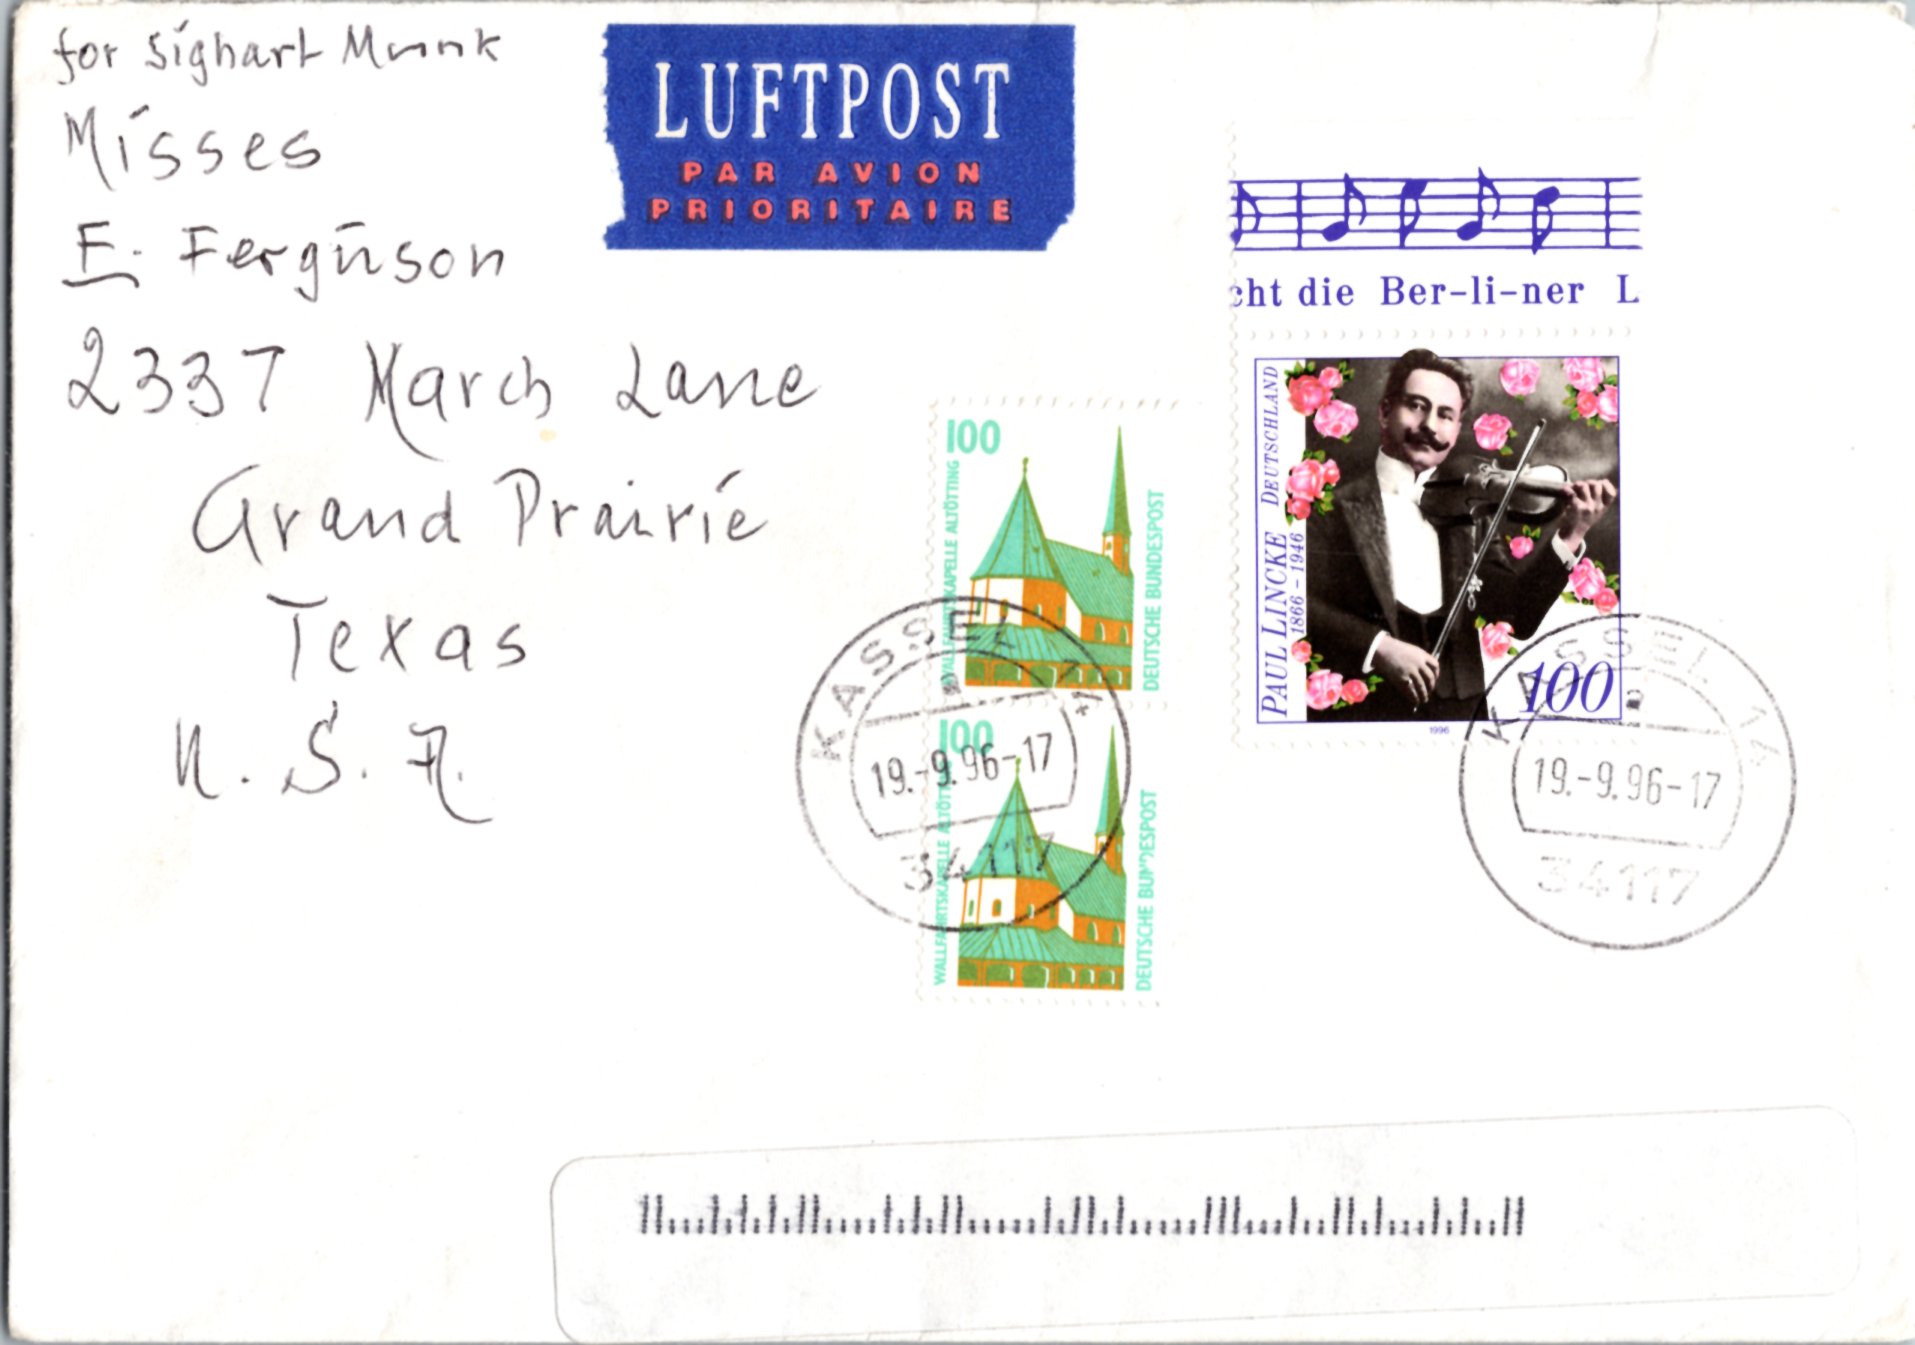 for Sighart Munk
Misses
E. Ferguson
2337 March Lane
Grand Prairie
Texas
U. S. A.
LUFTPOST
PAR AVION
PRIORITAIRE
cht die Ber-li-ner L
PAUL LINCKE DEUTSCHLAND
1866 – 1946
100
1996
100
WALLFAHRTSKAPELLE ALTÖTTING
DEUTSCHE BUNDESPOST
100
WALLFAHRTSKAPELLE ALTÖTTING
DEUTSCHE BUNDESPOST
KASSEL 14
a
19.-9.96-17
34117
KASSEL 14
a
19.-9.96-17
34117